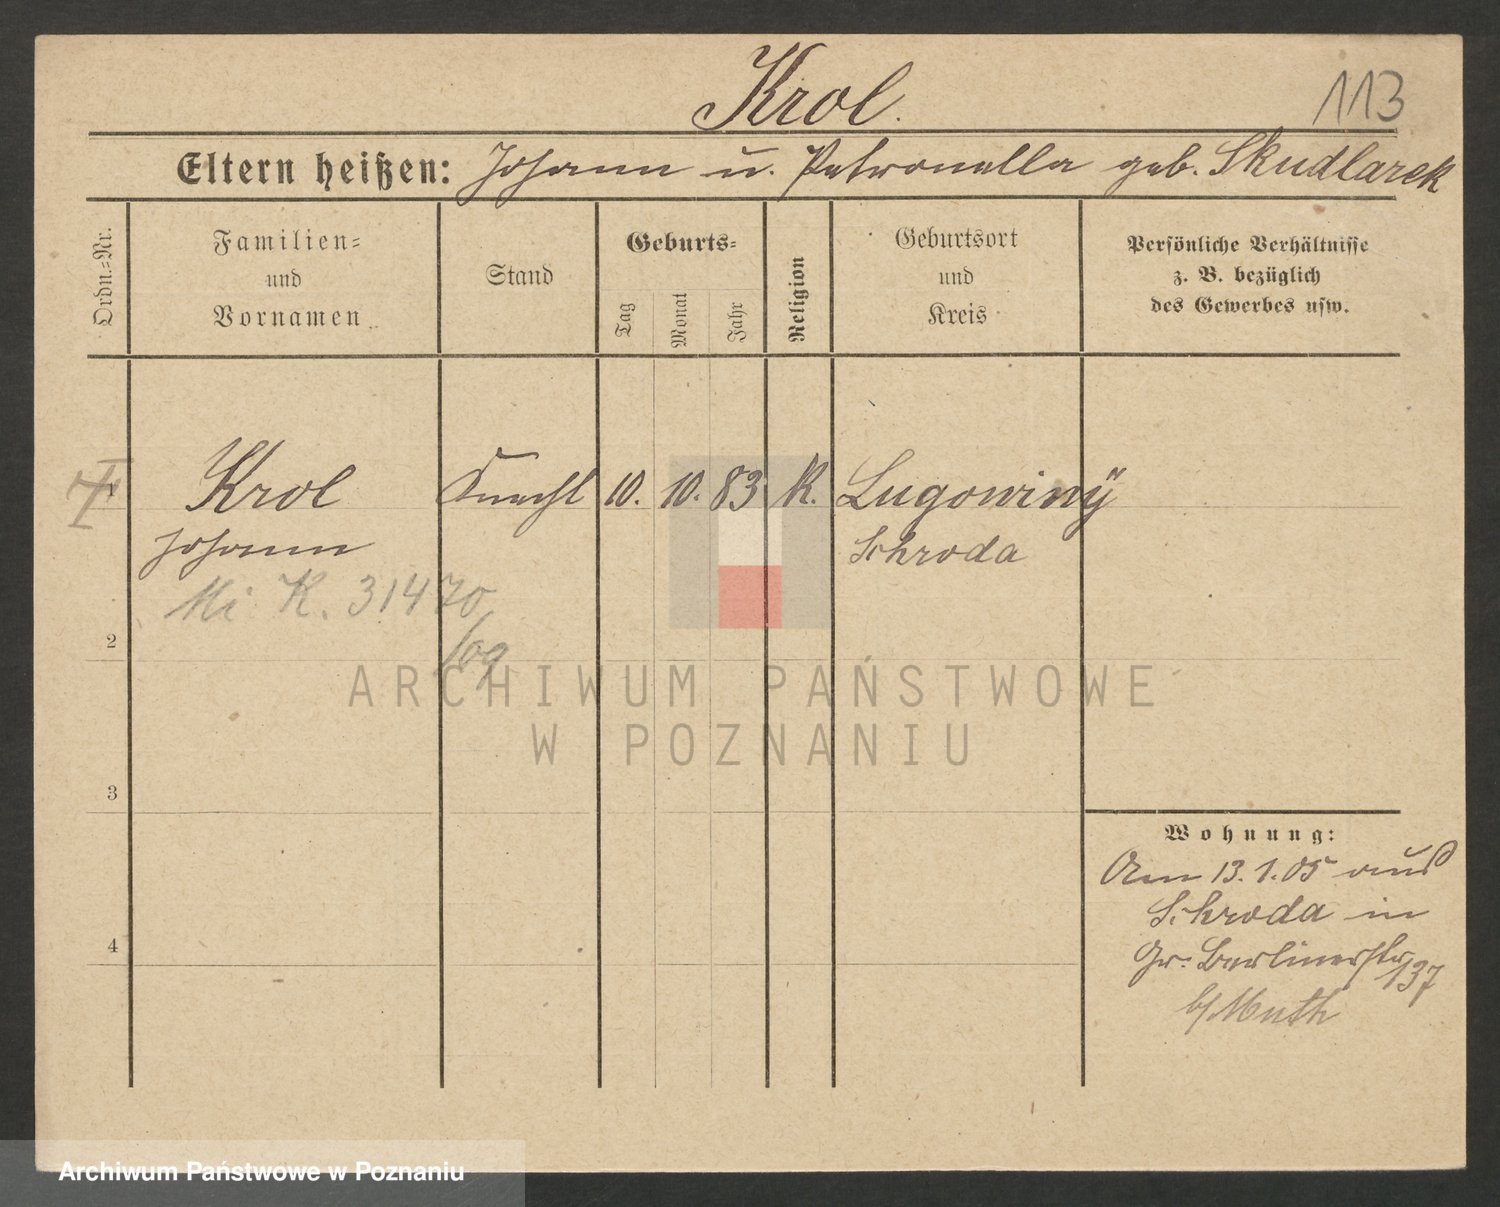 Krol.
113
Eltern heißen: Johann u. Petronella geb. Skudlarek
Ordn.=Nr.
Familien=
und
Vornamen
Stand
Geburts=
Tag
Monat
Jahr
Religion
Geburtsort
und
Kreis
Persönliche Verhältnisse
z. B. bezüglich
des Gewerbes usw.
1
Krol Knecht 10. 10. 83 K. Lugowiny
Johann Schroda
K. 31470
2
ARCHIWUM PAŃSTWOWE
W POZNANIU
3
Wohnung:
Am 13.1.05 aus
Schroda in
Gr. Berlinerstr
137
b/Muth
4
Archiwum Państwowe w Poznaniu